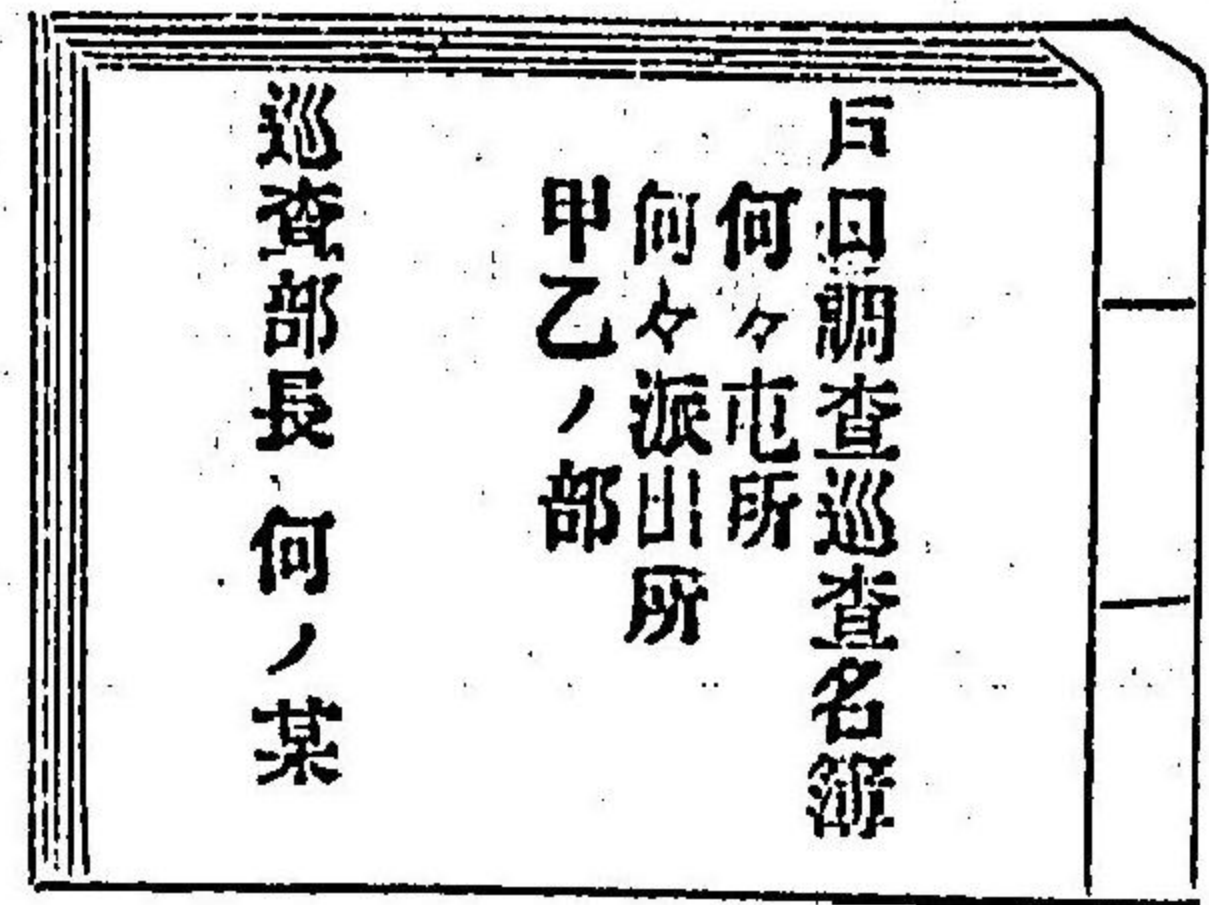 戸口調査巡査名簿
何々屯所
何々派出所
甲乙ノ部
巡査部長 何ノ某